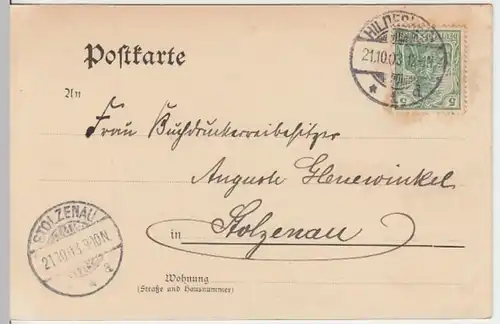 Postkarte
HILDESH
21.10.03 12-1N
* a
5 5
An
Frau Buchdruckereibesitzer
Auguste Henewinkel
in Stolzenau
STOLZENAU
21.10.03 9-10N
* a
Wohnung
(Straße und Hausnummer)